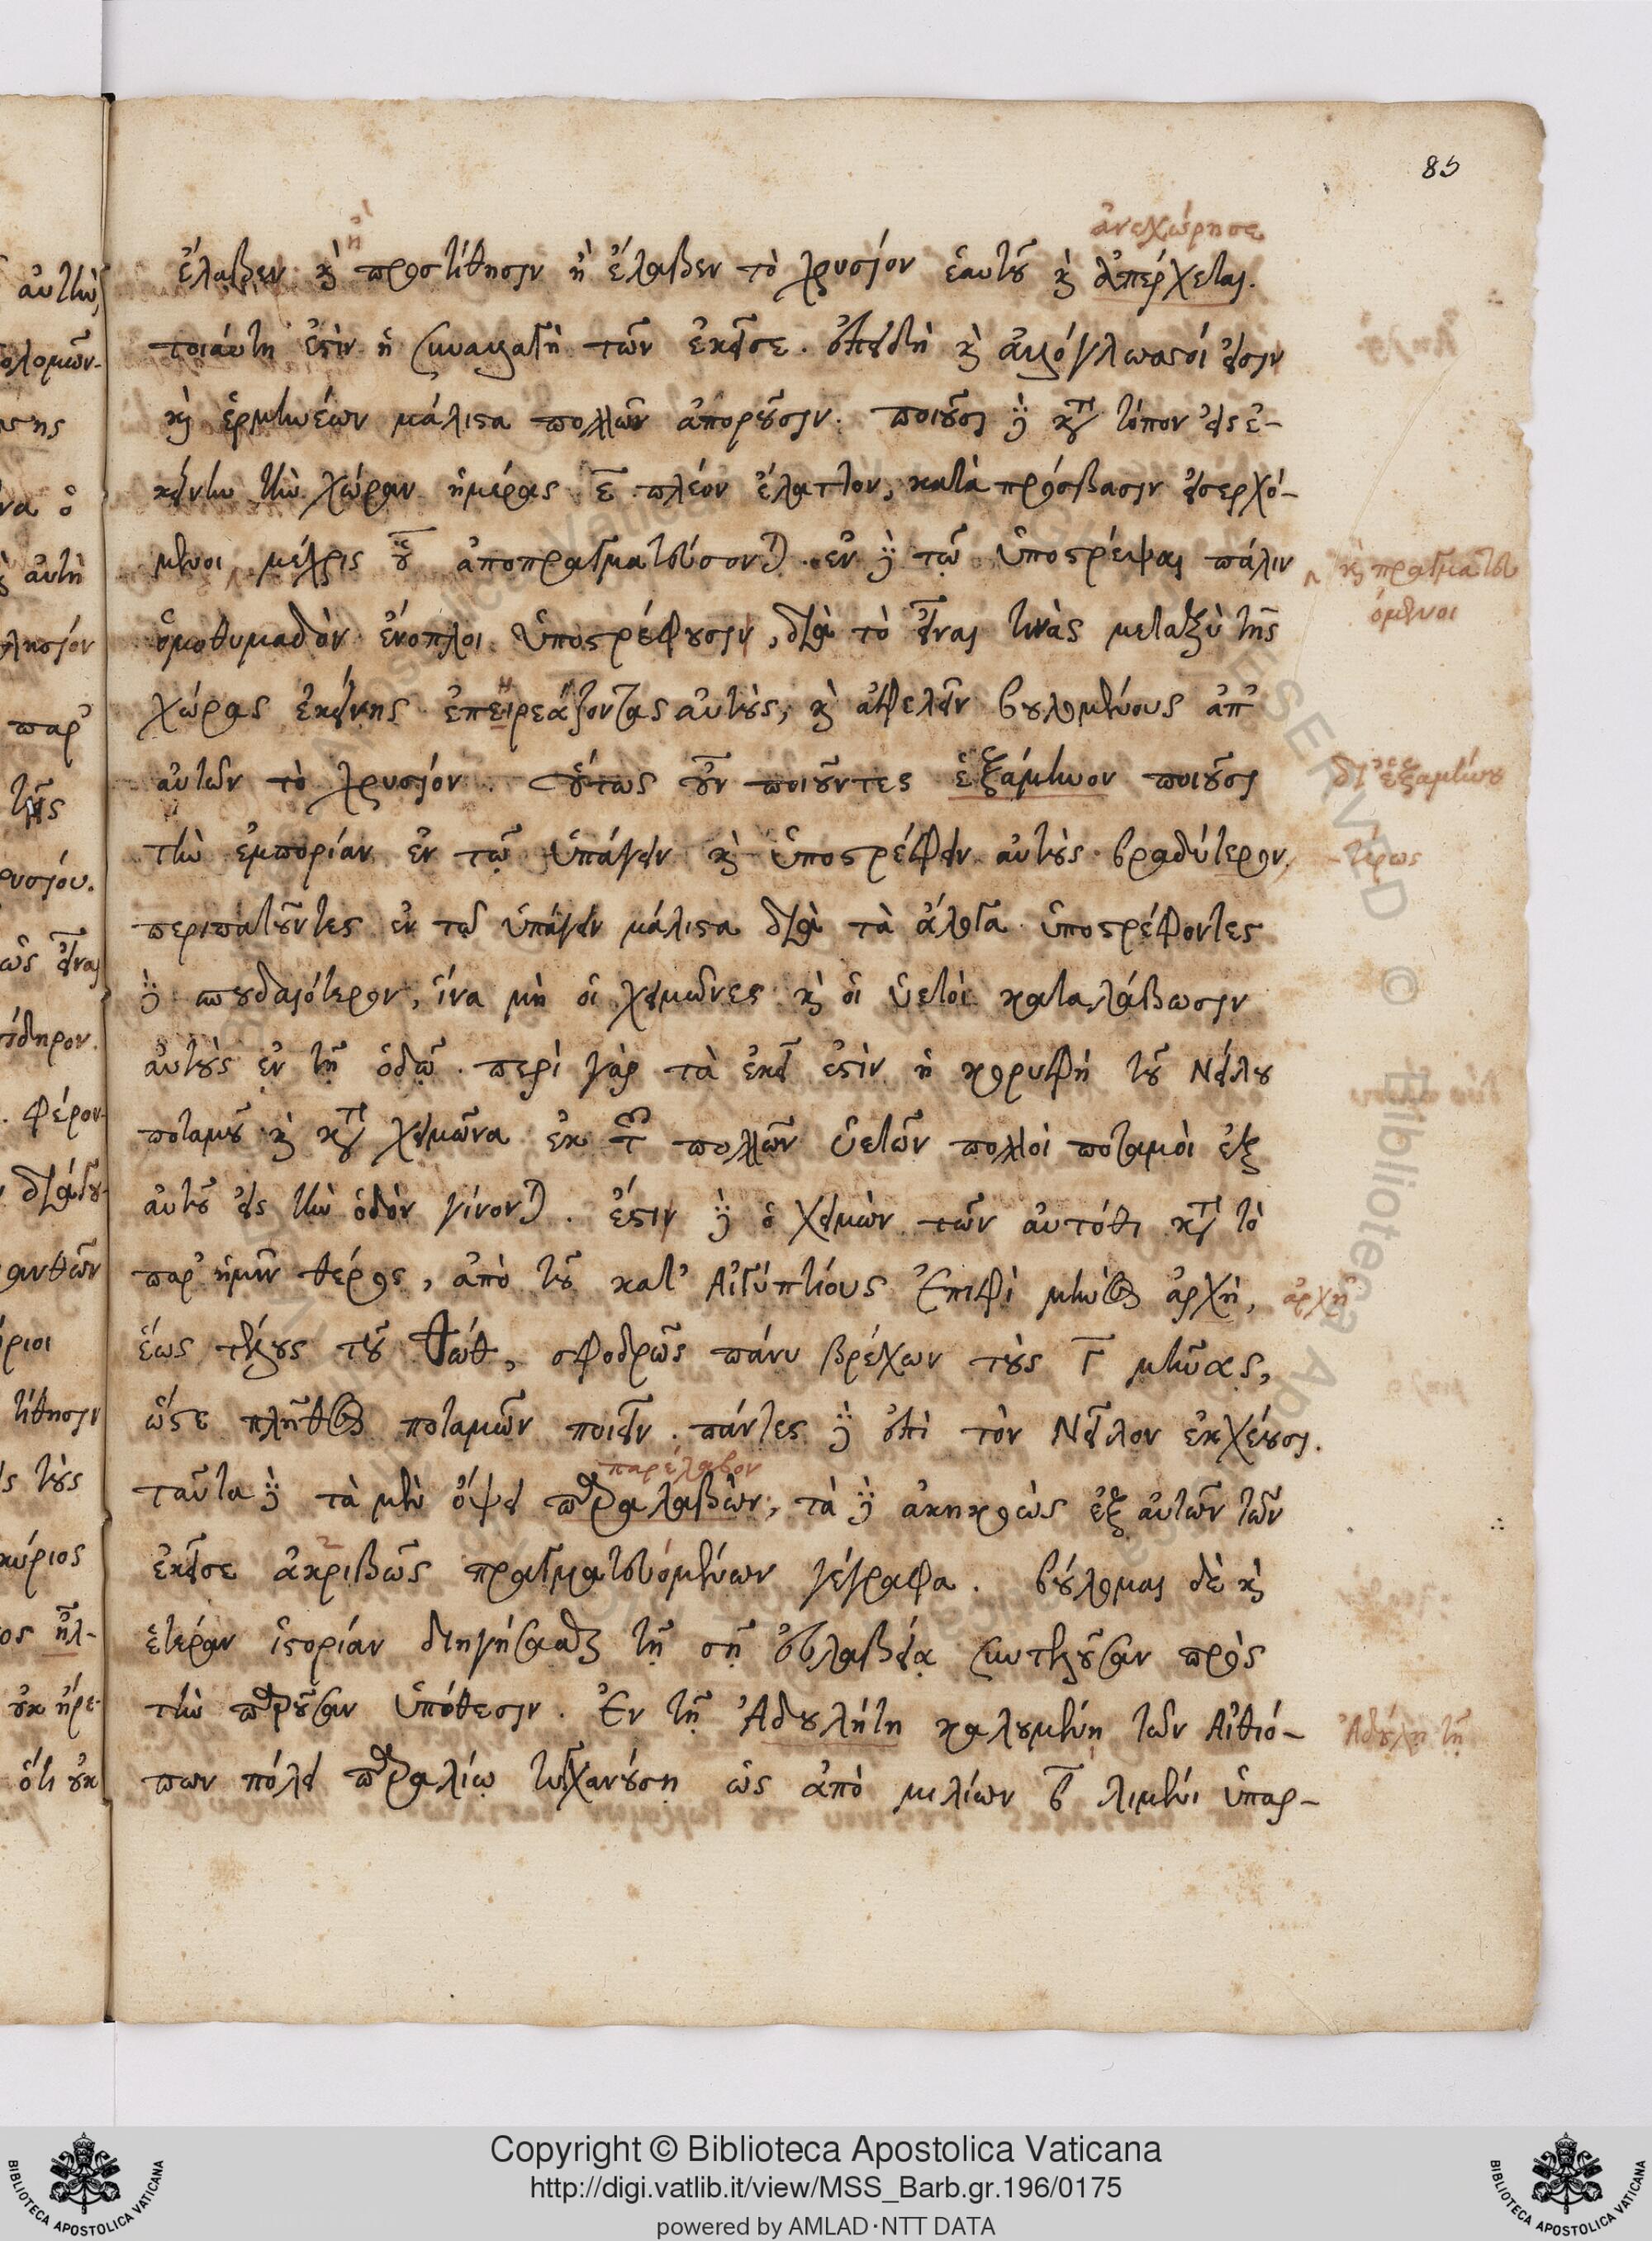 85
ἀνεχώρησε
ἢ
ἔλαβεν καὶ προστίθησιν ἢ ἔλαβεν τὸ χρυσίον ἑαυτοῦ καὶ ἀπέρχεται.
τοιαύτη ἐστὶν ἡ συναλλαγὴ τῶν ἐκεῖσε. ἐπειδὴ καὶ ἀλλόγλωσσοί εἰσιν
καὶ ἑρμηνέων μάλιστα πολλῶν ἀποροῦσιν. ποιοῦσι δὲ κατὰ τόπον εἰς ἐ-
κείνην τὴν χώραν ἡμέρας ε̅ πλέον ἔλαττον, κατὰ πρόσβασιν εἰσερχό-
μενοι μέχρις οὗ ἀποπραγματεύσονται. ἐν δὲ τῷ ὑποστρέψαι πάλιν
καὶ πραγματευ
όμενοι
ὁμοθυμαδὸν ἔνοπλοι ὑποστρέφουσιν, διὰ τὸ εἶναι τινὰς μεταξὺ τῆς
χώρας ἐκείνης ἐπειρεάζοντας αὐτοὺς, καὶ ἀφελεῖν βουλομένους ἀπ'
αὐτῶν τὸ χρυσίον. οὕτως οὖν ποιοῦντες ἑξάμηνον ποιοῦσι
δι' ἑξαμήνου
τὴν ἐμπορίαν ἐν τῷ ὑπάγειν καὶ ὑποστρέφειν αὐτοὺς βραδύτερον,
-τέρως
περιπατοῦντες ἐν τῷ ὑπάγειν μάλιστα διὰ τὰ ἄλογα. ὑποστρέφοντες
δὲ σπουδαιότερον, ἵνα μὴ οἱ χειμῶνες καὶ οἱ ὑετοὶ καταλάβωσιν
αὐτοὺς ἐν τῇ ὁδῷ. περὶ γὰρ τὰ ἐκεῖ ἐστὶν ἡ κορυφὴ τοῦ Νείλου
ποταμοῦ καὶ κατὰ χειμῶνα ἐκ τῶν πολλῶν ὑετῶν πολλοὶ ποταμοὶ ἐξ
αὐτοῦ εἰς τὴν ὁδὸν γίνονται. ἔστιν δὲ ὁ χειμὼν τῶν αὐτόθι κατὰ τὸ
παρ' ἡμῖν θέρος, ἀπὸ τοῦ κατ' Αἰγύπτιους Ἐπιφὶ μηνὸς ἀρχὴ,
ἀρχῇ
ἕως τέλους τοῦ Θώθ, σφοδρῶς πάνυ βρέχων τοὺς γ̅ μῆνας,
ὥστε πλῆθος ποταμῶν ποιεῖν. πάντες δὲ ἐπὶ τὸν Νεῖλον ἐκχέουσι.
παρέλαβον
ταῦτα δὲ τὰ μὲν ὄψει παραλαβὼν, τὰ δὲ ἀκηκοὼς ἐξ αὐτῶν τῶν
ἐκεῖσε ἀκριβῶς πραγματευομένων γέγραφα. βούλομαι δὲ καὶ
ἑτέραν ἱστορίαν διηγήσασθαι τῇ σῇ εὐλαβείᾳ συντελοῦσαν πρὸς
τὴν παροῦσαν ὑπόθεσιν. Ἐν τῇ Ἀδουλήτῃ καλουμένῃ τῶν Αἰθιό-
Ἀδούλῃ τῇ
πων πόλει παραλίῳ τυγχανούσῃ ὡς ἀπὸ μιλίων β̅ λιμένι ὑπαρ-
Copyright © Biblioteca Apostolica Vaticana
http://digi.vatlib.it/view/MSS_Barb.gr.196/0175
powered by AMLAD·NTT DATA
BIBLIOTECA APOSTOLICA VATICANA
BIBLIOTECA APOSTOLICA VATICANA